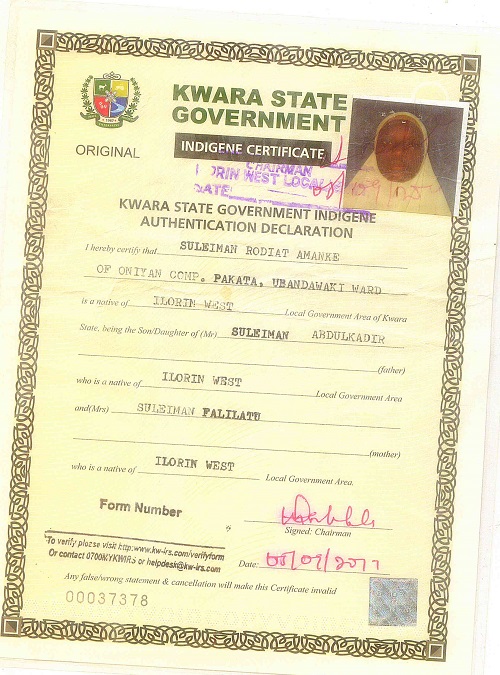 KWARA STATE
GOVERNMENT
ORIGINAL
INDIGENE CERTIFICATE
CHAIRMAN
ILORIN WEST LOCAL
DATE
KWARA STATE GOVERNMENT INDIGENE
AUTHENTICATION DECLARATION
I hereby certify that SULEIMAN RODIAT AMANKE
OF ONIYAN COMP. PAKATA, UBANDAWAKI WARD
is a native of ILORIN WEST Local Government Area of Kwara
State, being the Son/Daughter of (Mr) SULEIMAN ABDULKADIR
(father)
who is a native of ILORIN WEST Local Government Area
and(Mrs) SULEIMAN FALILATU
(mother)
who is a native of ILORIN WEST Local Government Area.
Form Number
Signed: Chairman
To verify please visit http:www.kw-irs.com/verifyform
Or contact 0700MYKWIRS or helpdesk@kw-irs.com
Date:
Any false/wrong statement & cancellation will make this Certificate invalid
00037378